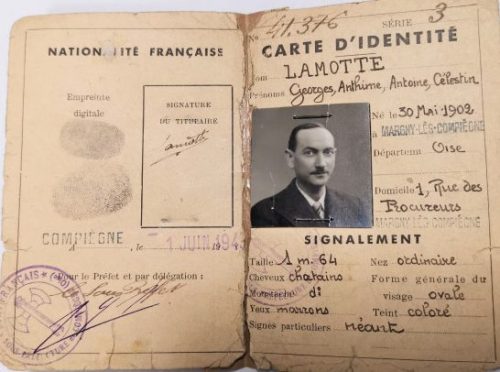 NATIONALITÉ FRANÇAISE
Empreinte
digitale
SIGNATURE
DU TITULAIRE
Lamotte
COMPIÈGNE, le 1 JUIN 194
Pour le Préfet et par délégation :
FRANÇAIS
No 41.376 SÉRIE 3
CARTE D'IDENTITÉ
Nom LAMOTTE
Prénoms Georges, Anthime, Antoine, Célestin
Né le 30 Mai 1902
à MARGNY-LÈS-COMPIÈGNE
Département Oise
Domicile 1, Rue des
Procureurs
MARGNY-LÈS-COMPIÈGNE
SIGNALEMENT
Taille 1 m. 64 Nez ordinaire
Cheveux chatains Forme générale du
Moustache do visage ovale
Yeux marrons Teint coloré
Signes particuliers néant